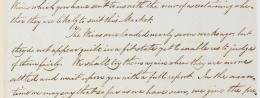 Wines which you have sent us with the view of ascertaining whe-
ther they are likely to suit this Market.
The Wines were landed nearly some weeks ago but
they do not appear quite in a fit state yet to enable us to judge
of them fairly. We shall try them again when they are more
settled and wait upon you with a full report. In the mean
time we may say that so far as we have seen, we give the pre